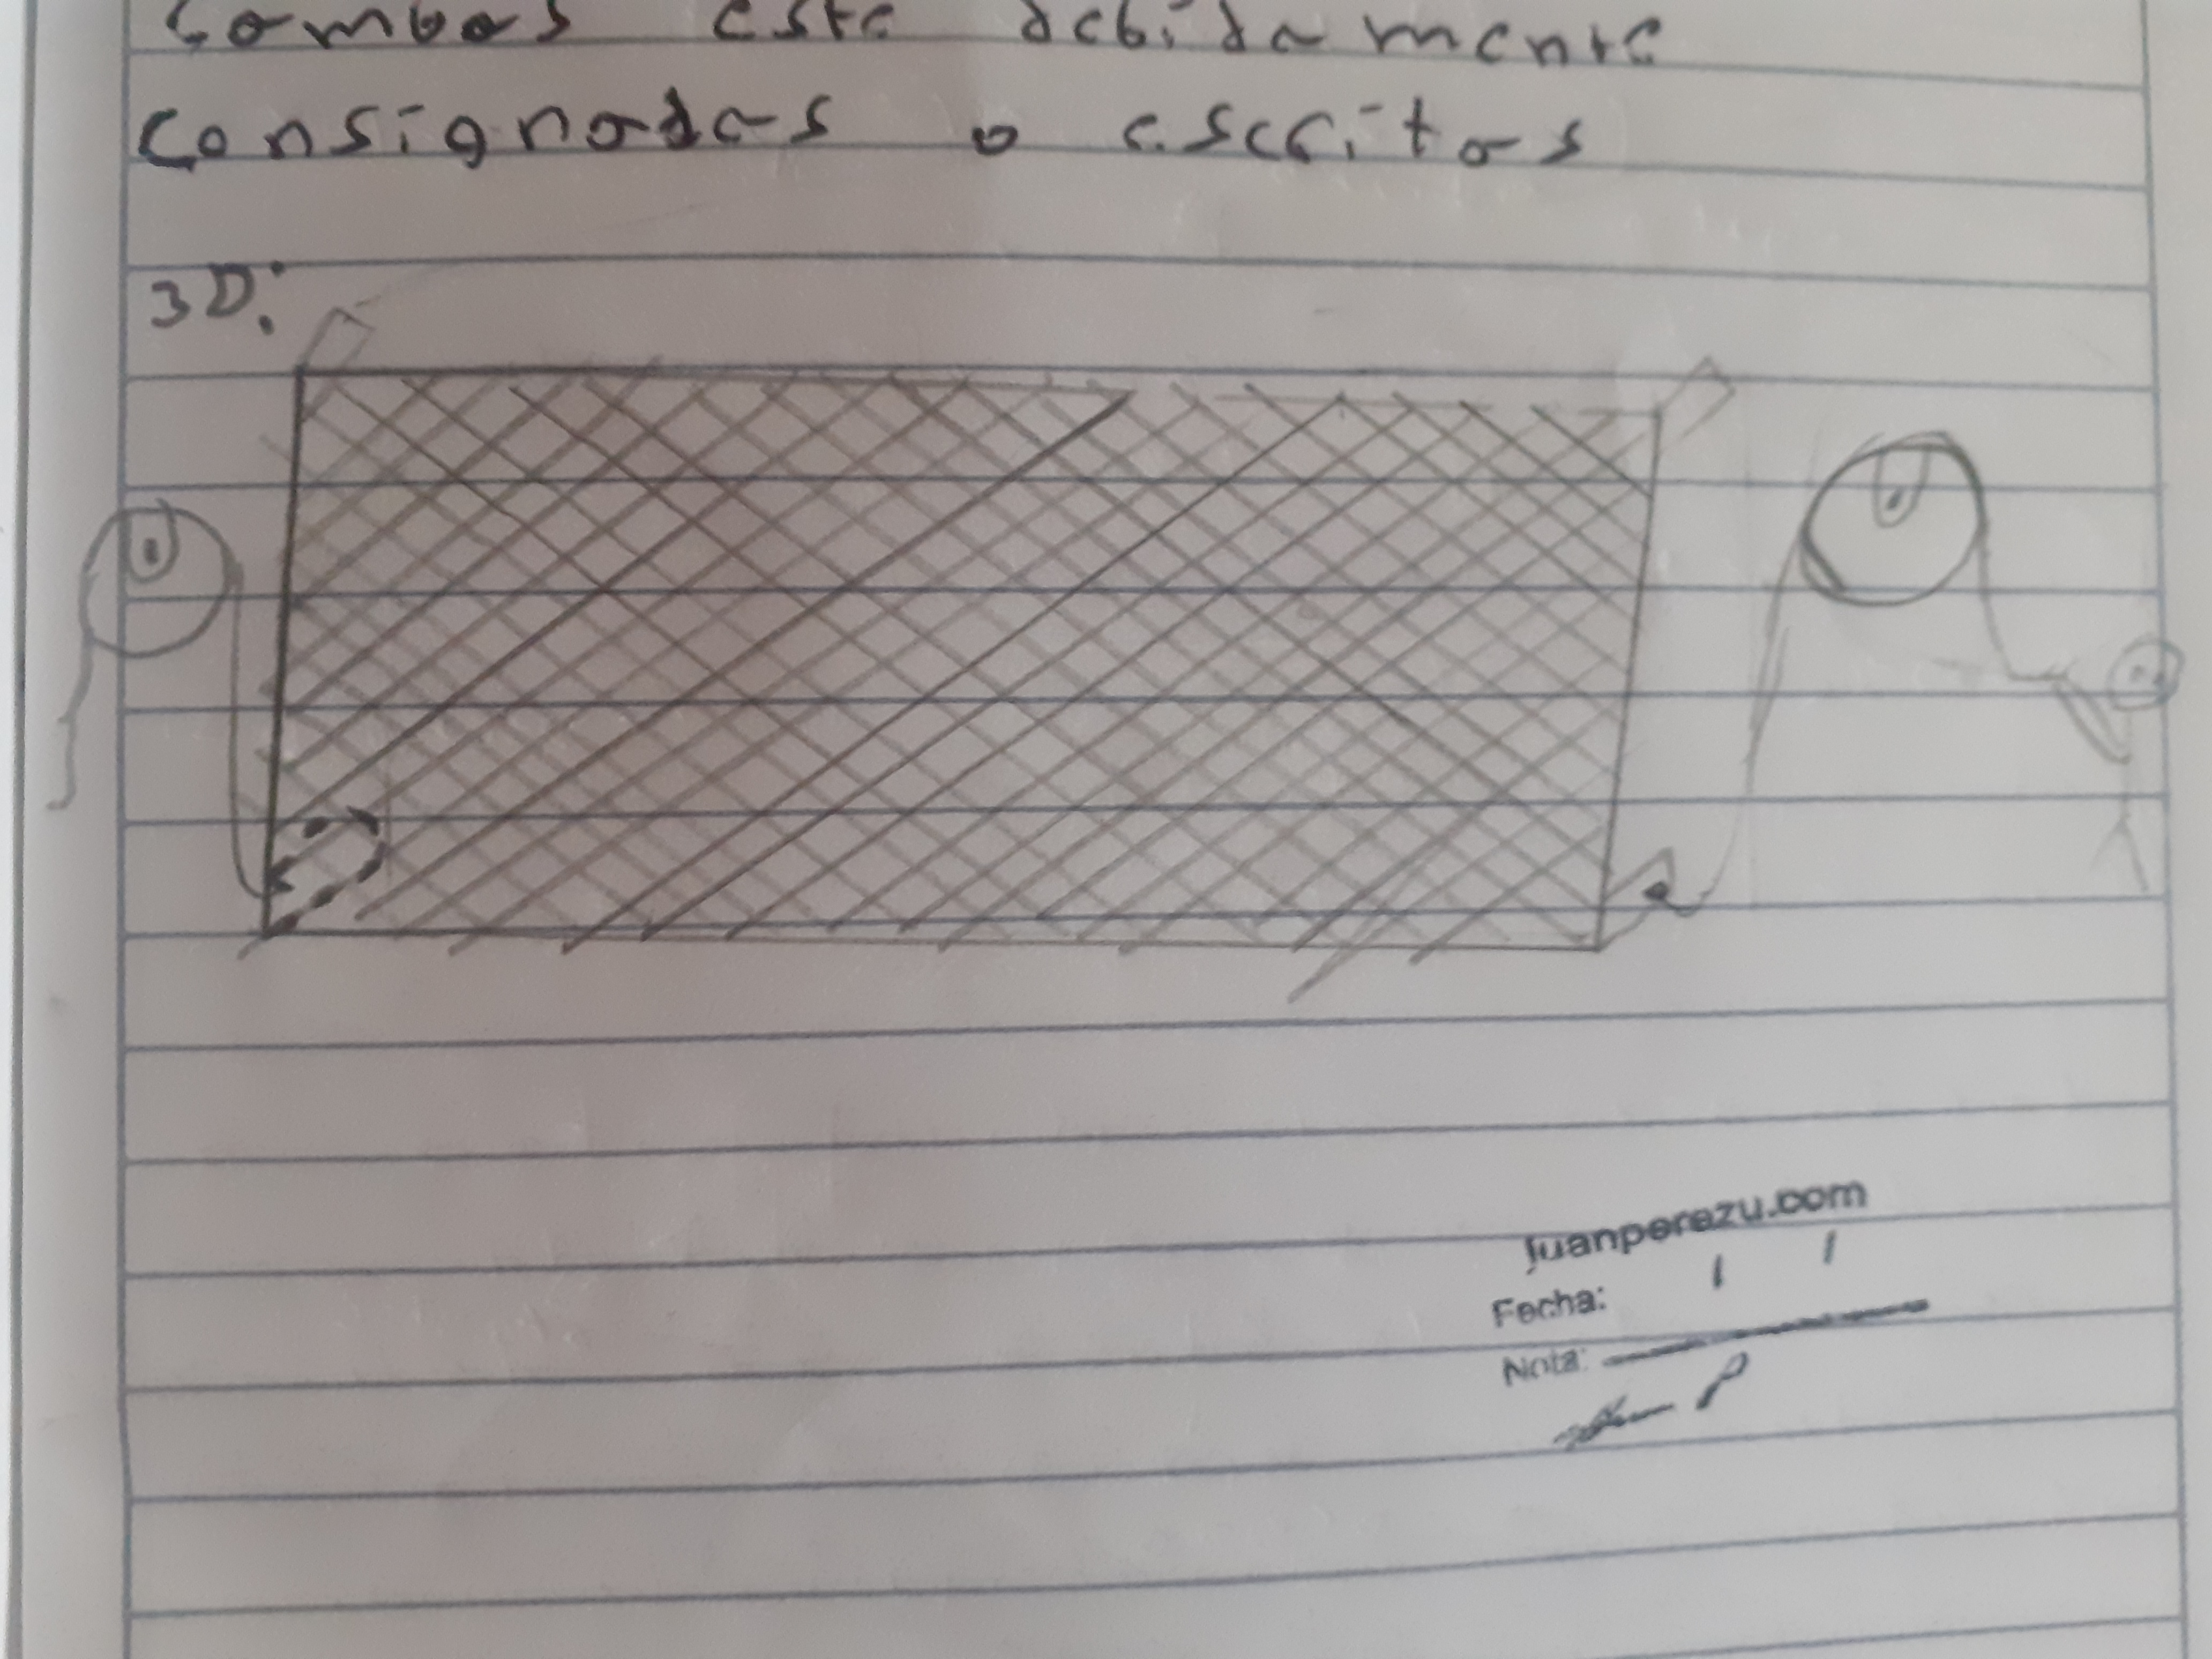 Combas este debidamente
Consignadas o escritas
3D:
juanperezu.com
Fecha: / /
Nota: